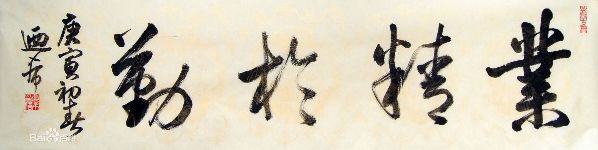 業精於勤
庚寅初春
Baidu百科